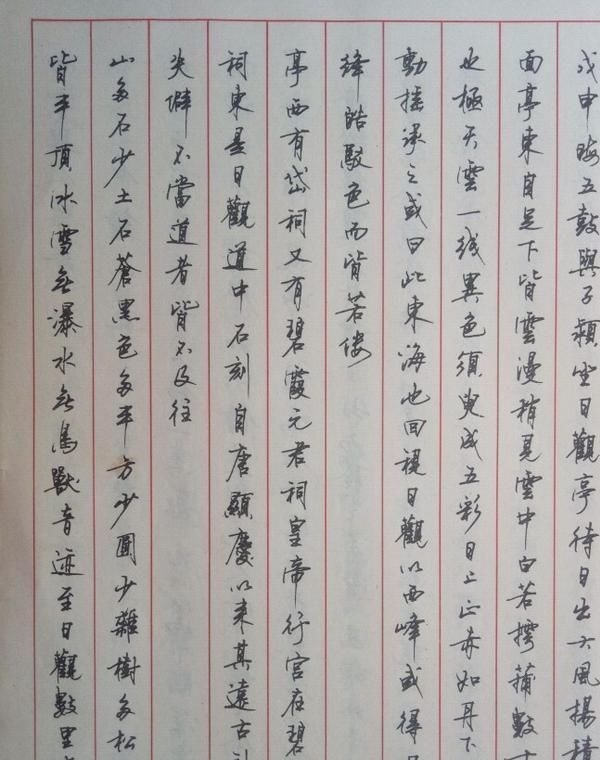 戊申晦五鼓與子潁坐日觀亭待日出大風揚積
面亭東自足下皆雲漫稍見雲中白若摴蒱數十
也極天雲一线異色須臾成五彩日上正赤如丹下
動摇承之或曰此東海也回視日觀以西峰或得日
绛皓駁色而皆若僂
亭西有岱祠又有碧霞元君祠皇帝行宫在碧
祠東是日觀道中石刻自唐顯慶以来其遠古刻
失僻不當道者皆不及往
山多石少土石蒼黑色多平方少圓少雜樹多松
皆平頂冰雪無瀑水無鳥獸音迹至日觀數里